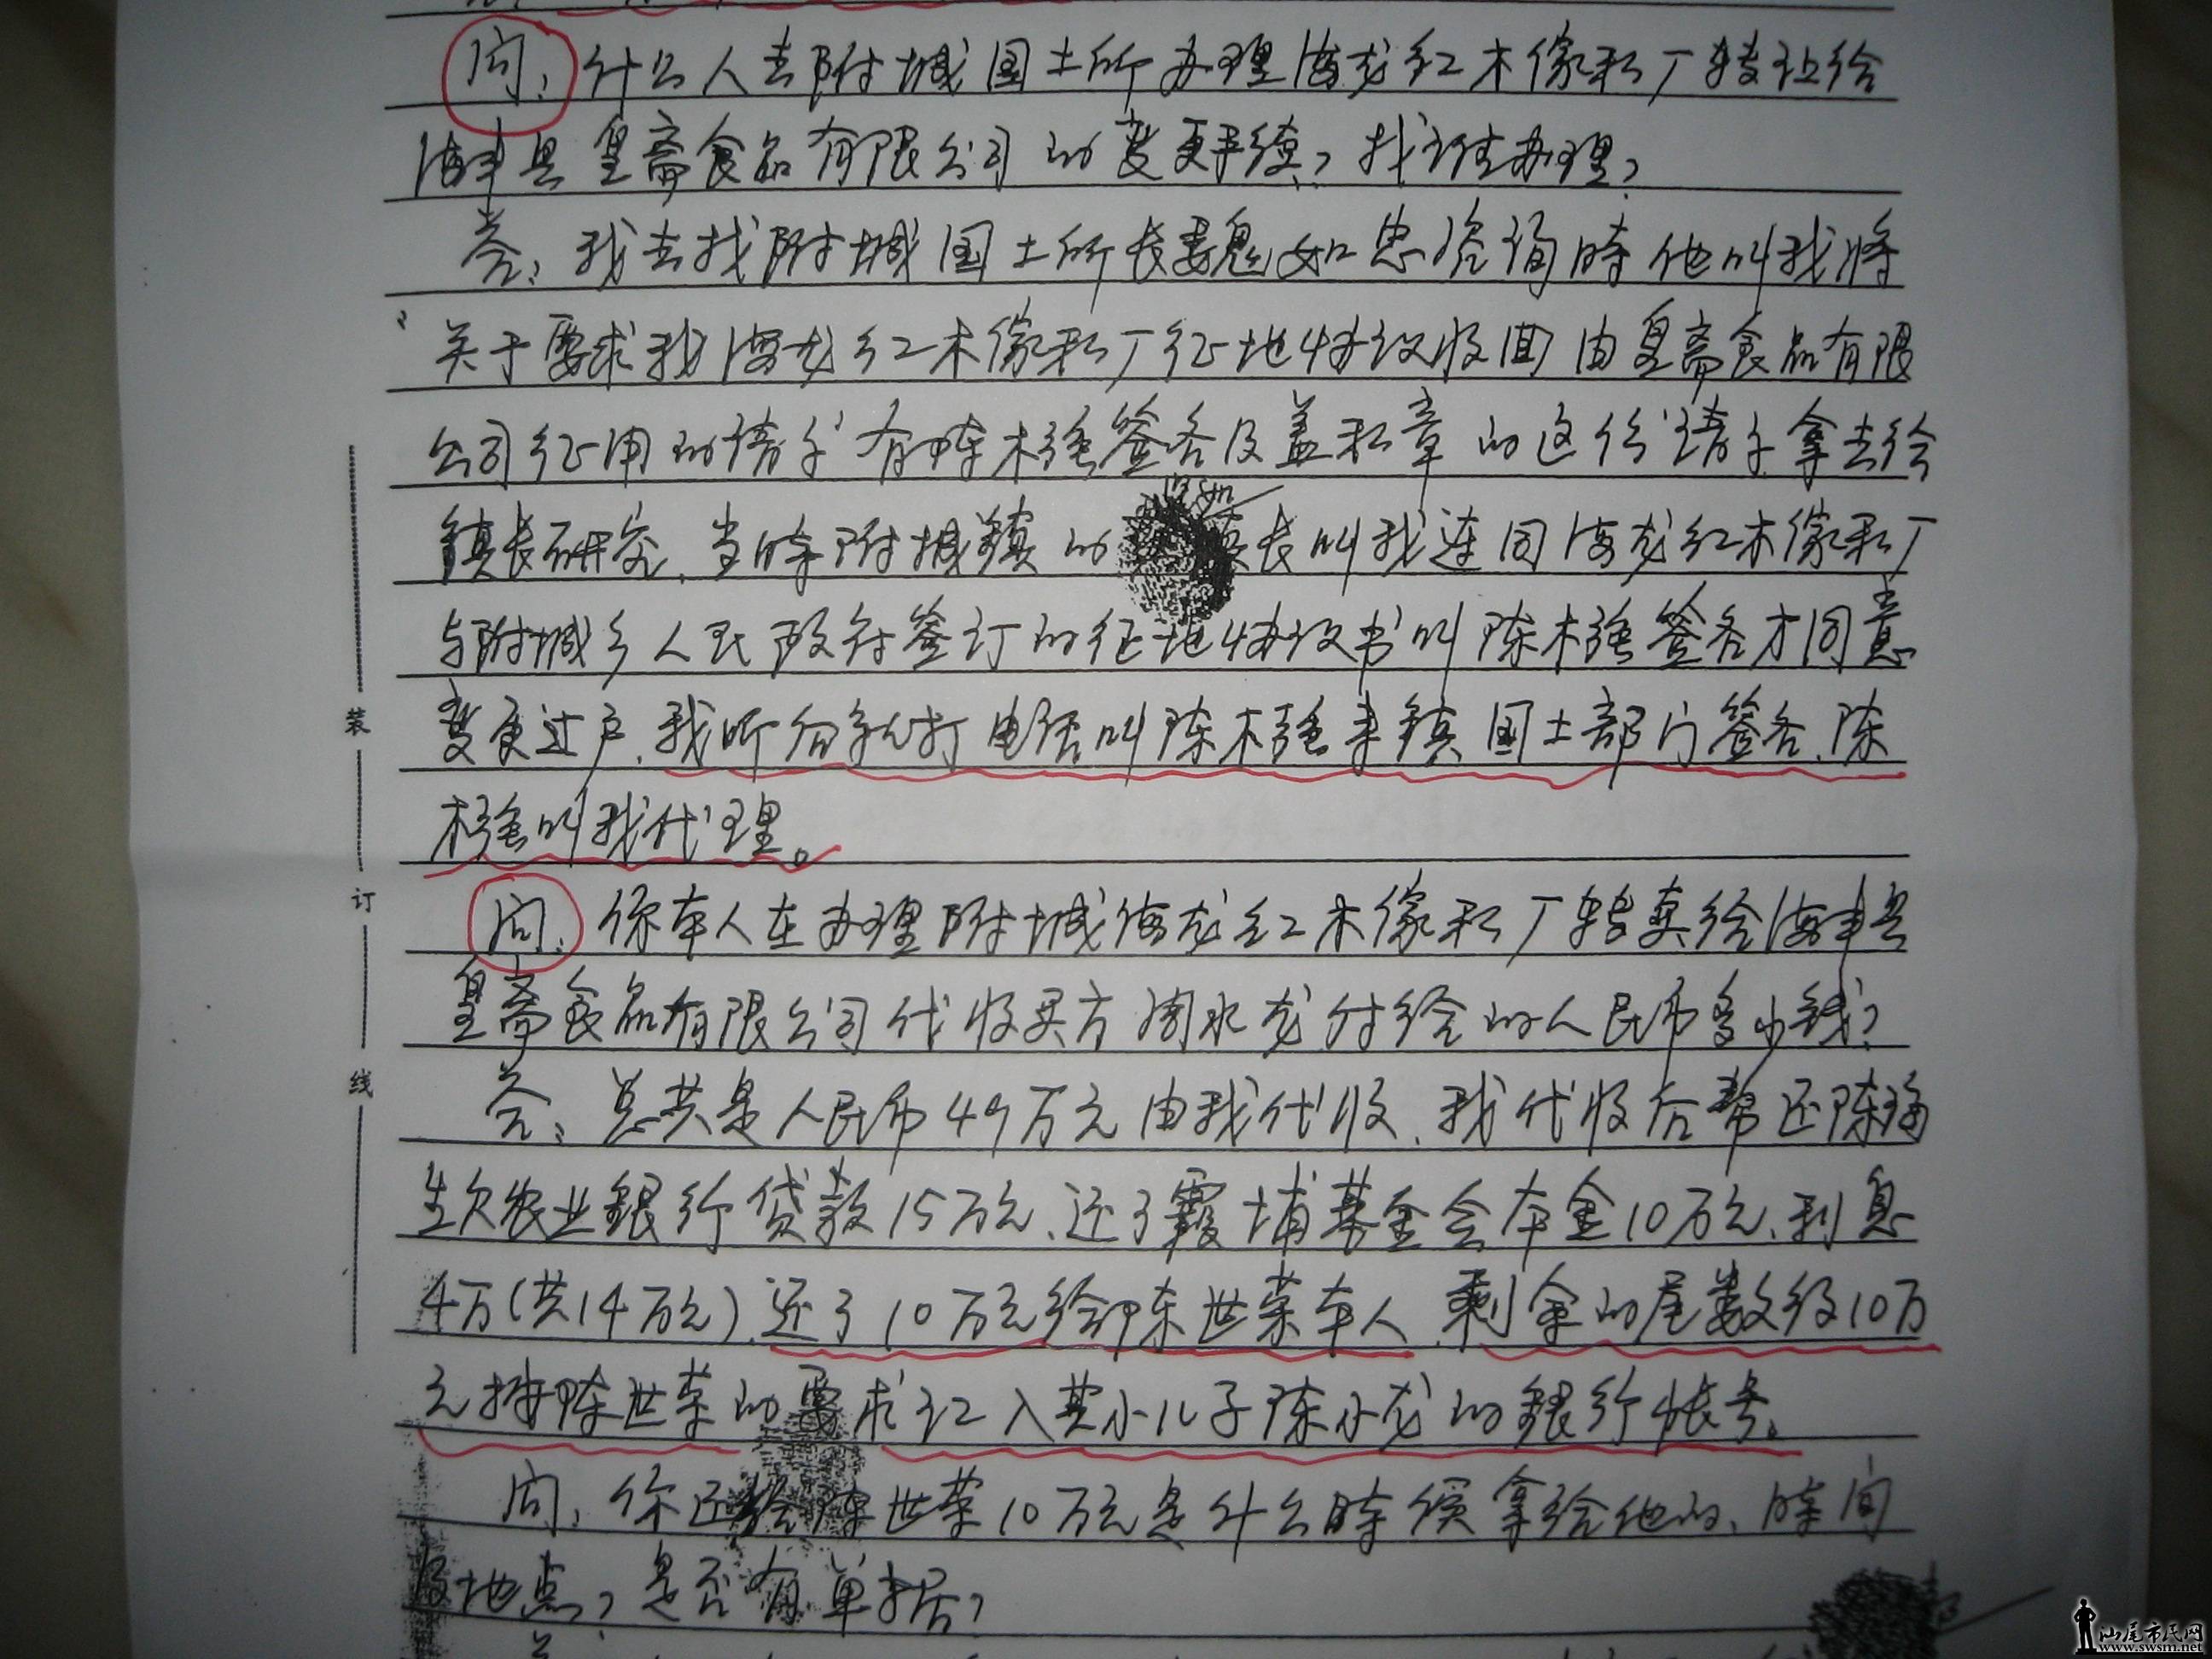 问：什么人去附城国土所办理海龙红木傢私厂转让给
海丰县皇斋食品有限公司的变更手续？找谁办理？
答：我去找附城国土所长魏如忠咨询時他叫我将
关于要求我海龙红木傢私厂征地协议收回由皇斋食品有限
公司征用的请示有陈木强签名及盖私章的这份请示拿去给
镇长研究，当時附城镇的 镇长叫我连同海龙红木傢私厂
与附城乡人民政府签订的征地协议书叫陈木强签名才同意
变更过户，我听后就打电话叫陈木强来镇国土部门签名，陈
木强叫我代理。
问：你本人在办理附城海龙红木傢私厂转卖给海丰县
皇斋食品有限公司代收买方 永龙付给的人民币多少钱？
答：总共是人民币49万元由我代收，我代收后帮还陈
生欠农业銀行贷款15万元，还了霞埔基金会本金10万元，利息
4万（共14万元），还了10万元给陈世荣本人，剩余的尾数约10万
元按陈世荣的要求汇入其小儿子陈小龙的銀行帐号。
问：你还给陈世荣10万元是什么時候拿给他的，時间
及地点？是否有单据？
答
装
订
线
汕尾市民网
www.swsm.net